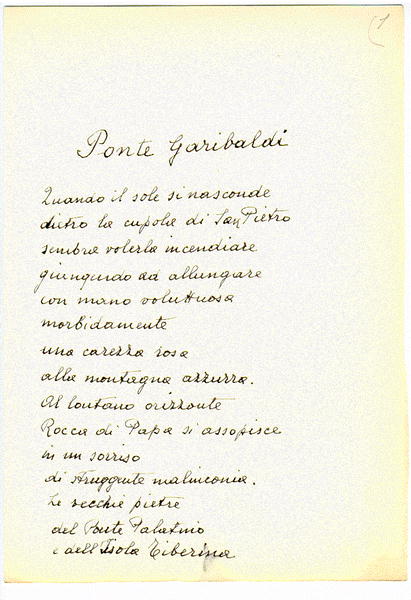 1
Ponte Garibaldi
Quando il sole si nasconde
dietro la cupola di San Pietro
sembra volerla incendiare
giungendo ad allungare
con mano voluttuosa
morbidamente
una carezza rosa
alla montagna azzurra.
Al lontano orizzonte
Rocca di Papa si assopisce
in un sorriso
di struggente malinconia.
Le vecchie pietre
del Ponte Palatino
e dell'Isola Tiberina